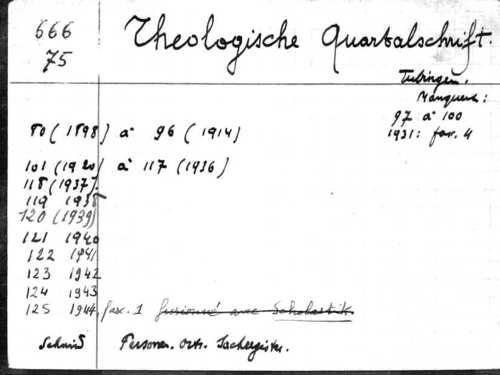 666 Theologische Quartalschrift.
75
Tubingen.
Manquent:
97 à 100
1931: fasc. 4
80 (1898) à 96 (1914)
101 (1920) à 117 (1936)
118 (1937).
119 1938
120 (1939)
121 1940
122 1941
123 1942
124 1943
125 1944, fasc. 1 fusionné avec Scholastik.
Personen. Orts. Sachregister.